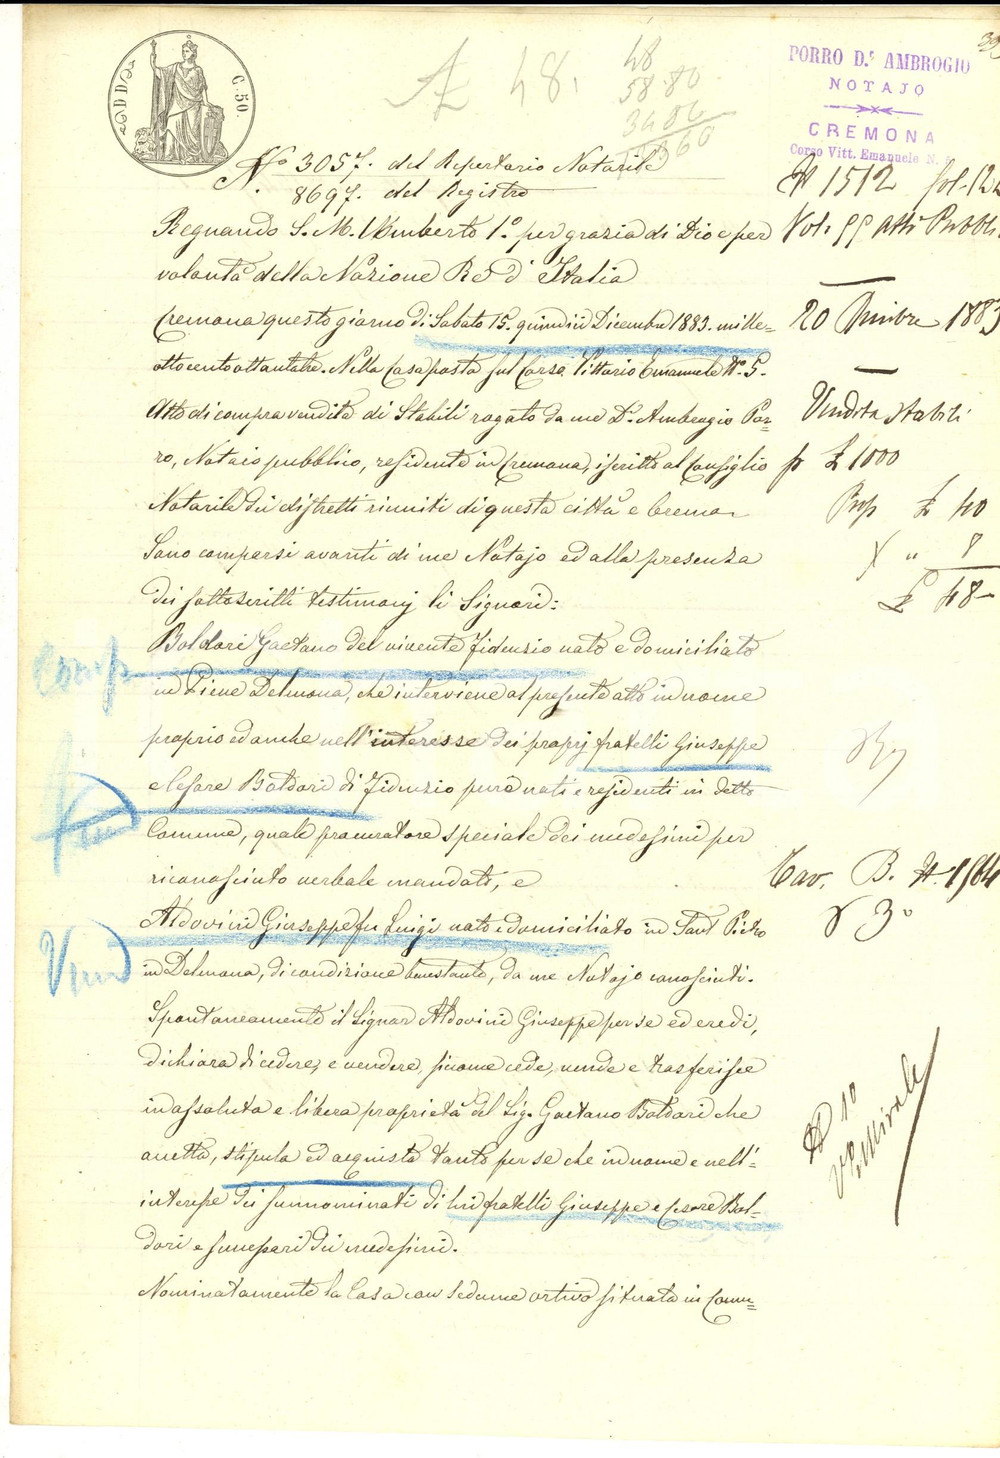 DDD
C. 50.
48.
48
58 80
34 80
PORRO D.r AMBROGIO
NOTAJO
CREMONA
Corso Vitt. Emanuele N. 5
N.o 3057. del Repertorio Notarile
8697. del Registro
N 1512 fol. 122
Vol. 99 Atti Pubbli
Regnando S. M. Umberto 1.o per grazia di Dio e per
volontà della Nazione Re d'Italia
Cremona questo giorno di Sabato 15. quindici Dicembre 1883. mille=
ottocentottantatre. Nella Casa posta sul Corso Vittorio Emanuele N.o 5.
Atto di compra vendita di Stabili rogato da me D.r Ambrogio Por=
ro, Notaio pubblico, residente in Cremona, iscritto al Consiglio
Notarile dei distretti riuniti di questa città e Crema
Sono comparsi avanti di me Notajo ed alla presenza
dei sottoscritti testimonj li Signori:
Boldori Gaetano del vivente Fidenzio nato e domiciliato
in Pieve Delmona, che interviene al presente atto in nome
proprio ed anche nell'interesse dei proprj fratelli Giuseppe
e Cesare Boldori di Fidenzio pure nati e residenti in detto
Comune, quale procuratore speciale dei medesimi per
riconosciuto verbale mandato, e
Aldovini Giuseppe fu Luigi nato e domiciliato in Sant Pietro
in Delmona, di condizione benestante, da me Notajo conosciuti.
Spontaneamente il Signor Aldovini Giuseppe per se ed eredi,
dichiara di cedere, e vendere, siccome cede, vende e trasferisce
in assoluta e libera proprietà del Sig. Gaetano Boldori che
accetta, stipula ed acquista tanto per se che in nome e nell'=
interesse dei sunnominati di lui fratelli Giuseppe e Cesare Bol=
dori e successori dei medesimi.
Nominatamente la Casa con sedume ortivo situata in Comu=
20 Dicembre 1883
Vendita stabili
p £ 1000
Prop £ 40
" 8
£ 48-
Comp
Vend
Cav. B. N. 1564
3o
N 10